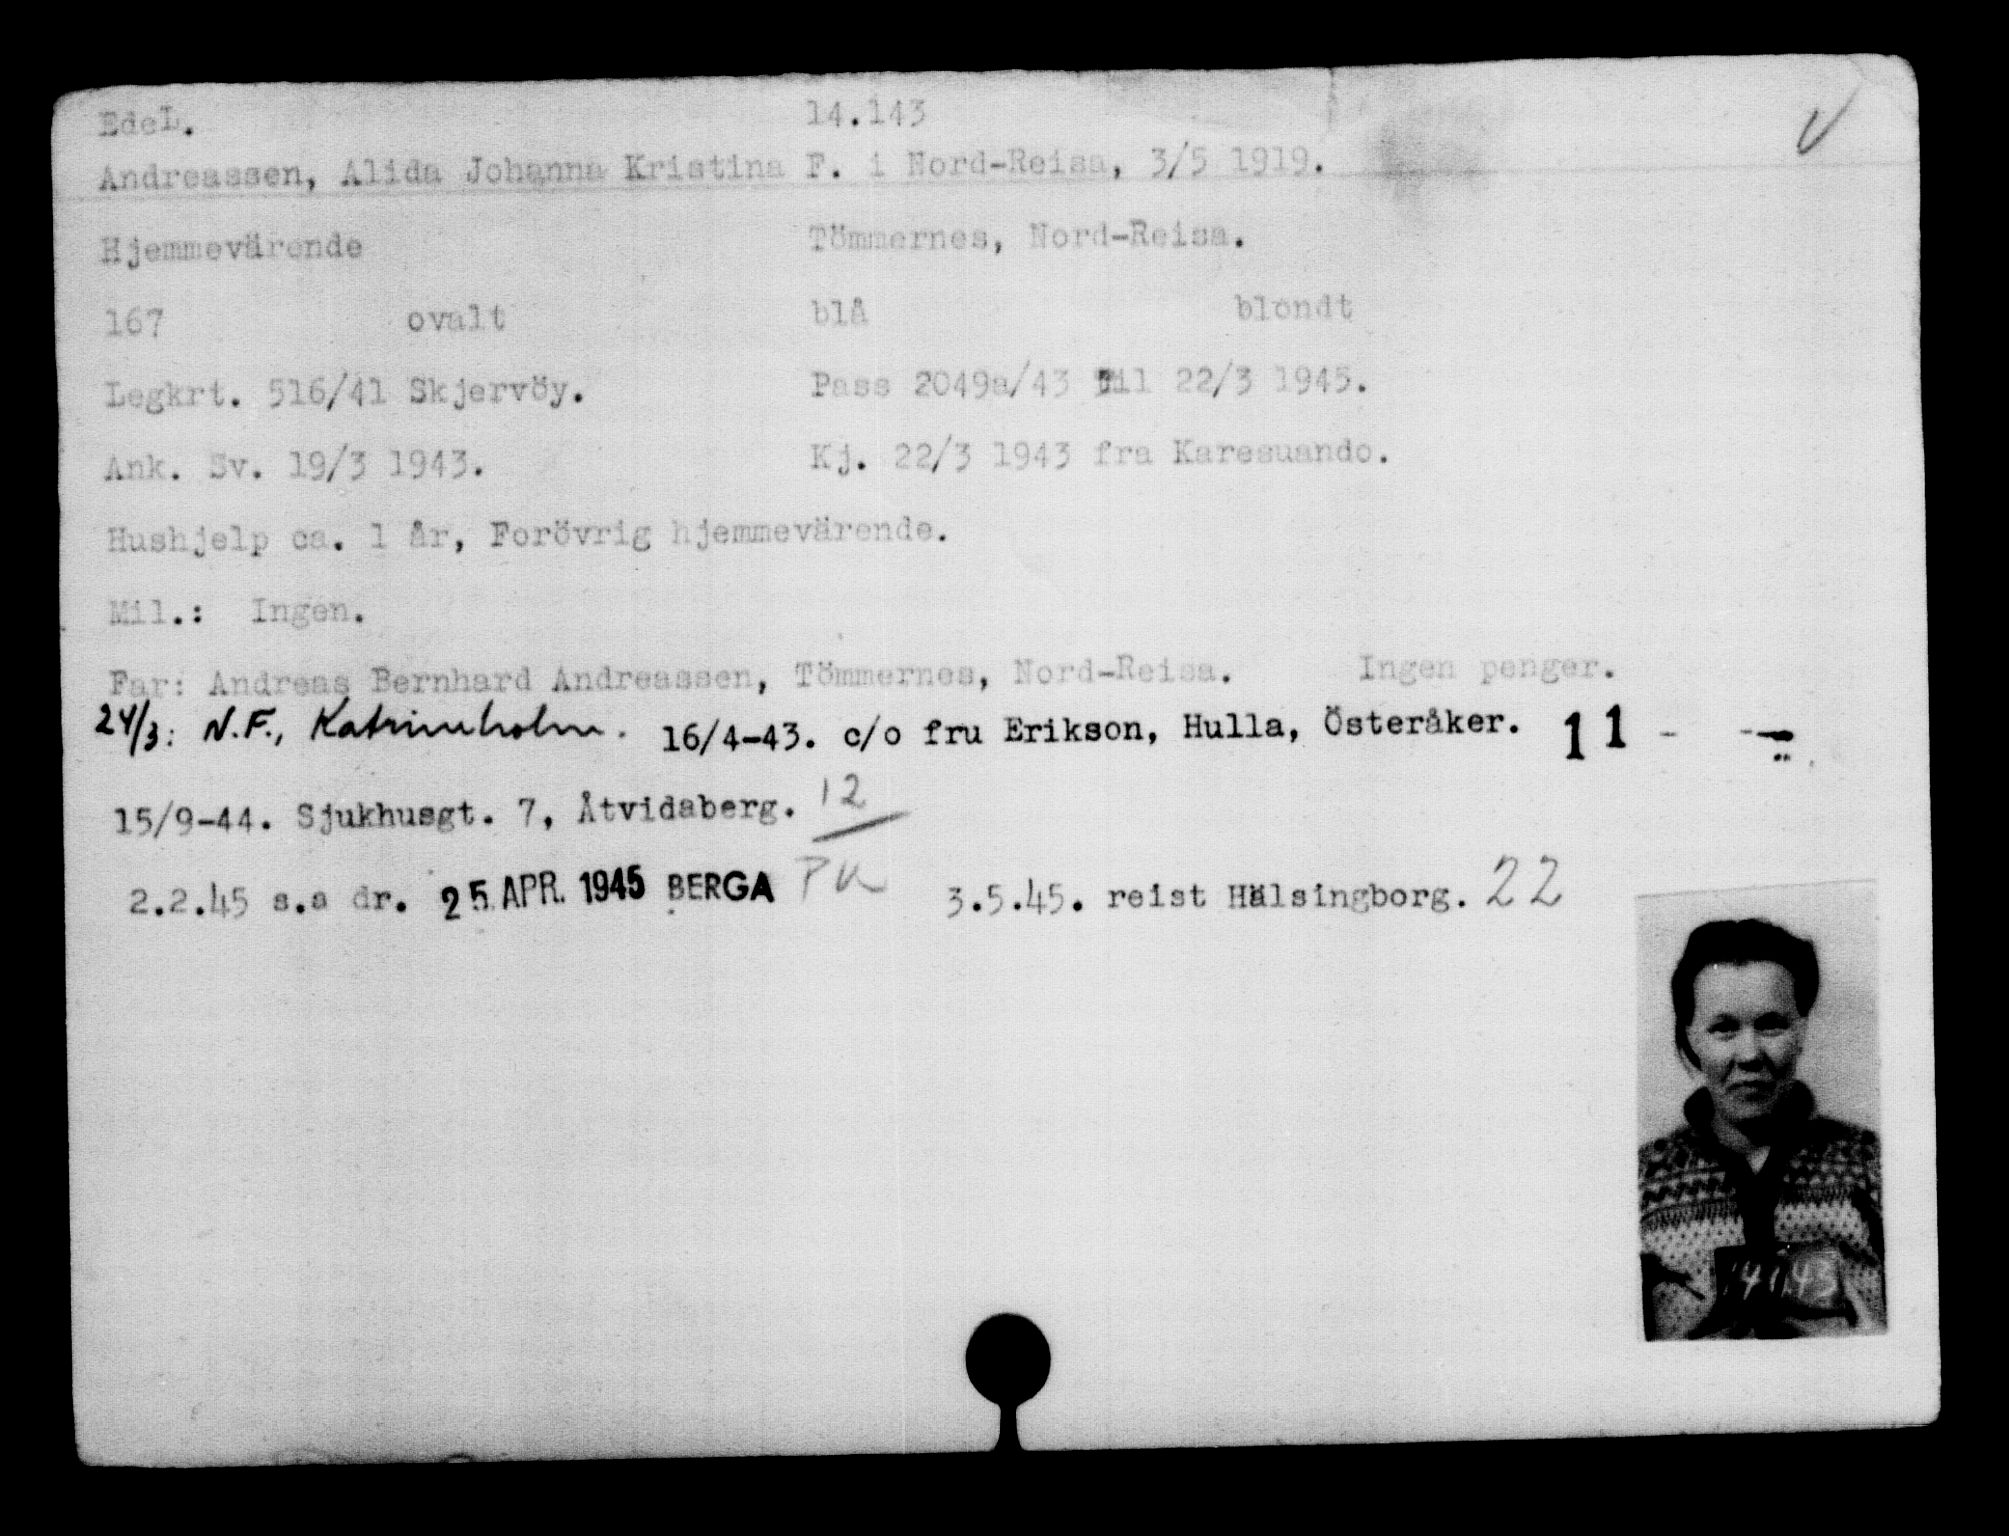 EdeL. 14.143
Andreassen, Alida Johanna Kristina F. i Nord-Reisa, 3/5 1919.
Hjemmevärende Tömmernes, Nord-Reisa.
167 ovalt blå blondt
Legkrt. 516/41 Skjervöy. Pass 2049a/43 til 22/3 1945.
Ank. Sv. 19/3 1943. Kj. 22/3 1943 fra Karesuando.
Hushjelp ca. 1 år, Forövrig hjemmevärende.
Mil.: Ingen.
Far: Andreas Bernhard Andreassen, Tömmernes, Nord-Reisa. Ingen penger.
24/3: N.F., Katrineholm. 16/4-43. c/o fru Erikson, Hulla, Österåker. 11 - -
15/9-44. Sjukhusgt. 7, Åtvidaberg. 12
2.2.45 s.a dr. 25. APR. 1945 BERGA PK 3.5.45. reist Hälsingborg. 22
14143